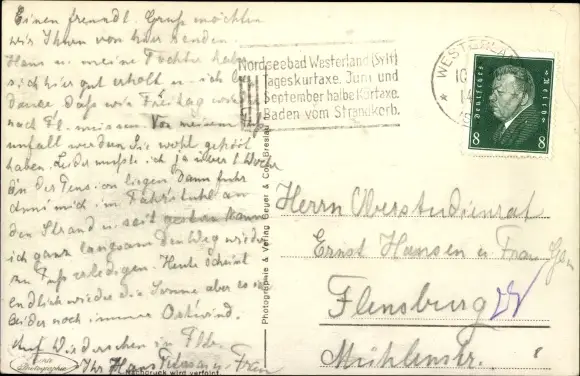 Einen freundl. Gruß möchten
wir Ihnen von hier senden.
Hans u. meine Tochter haben
sich hier gut erholt u. ich
daß wir Freitag
nach Fl. müssen. Von meinem
unfall werden Sie wohl gehört
haben. Leider mußte ich ja über 1 Woche
in der Pension liegen. Dann fuhr
mich im Fahrstuhl am
den Strand u. seit gestern kann
ich ganz langsam den Weg wieder
zu Fuß erledigen. Heute scheint
endlich wieder die Sonne aber es ist
leider noch immer Ostwind.
Auf Wiedersehen in Flbg.
Ihr Hans u. Frau
Nachdruck wird verfolgt.
Nordseebad Westerland (Sylt)
Tageskurtaxe, Juni und
September halbe Kurtaxe.
Baden vom Strandkorb.
WESTERLAND
Deutsches Reich
8 8
Photographie & Verlag Geyer & Co., Breslau
Herrn Oberstudienrat
Ernst Hansen u. Frau
Flensburg
Mühlenstr.